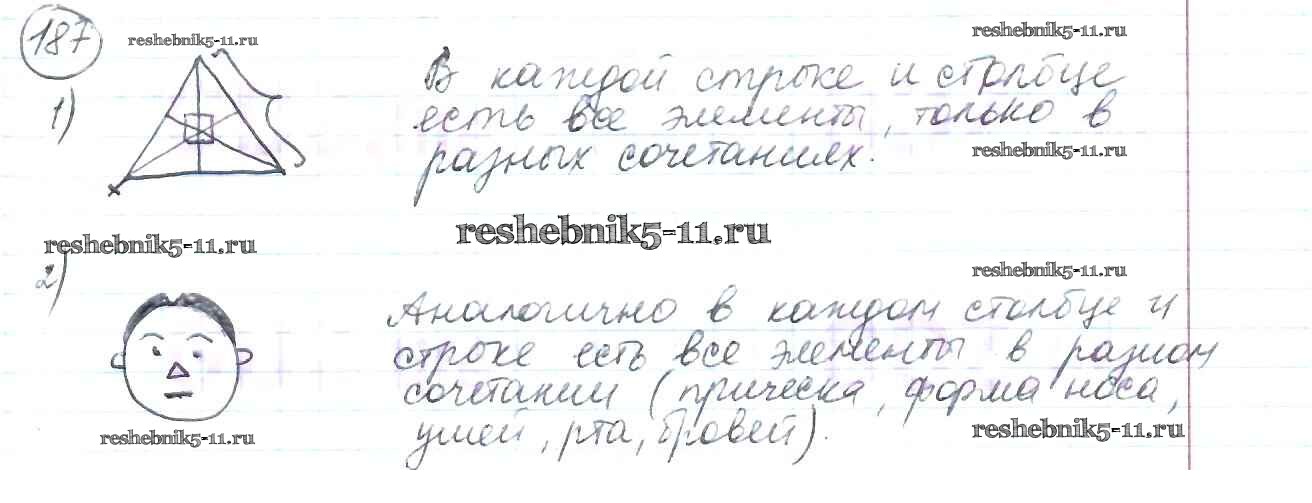 187
reshebnik5-11.ru
reshebnik5-11.ru
1)
В каждой строке и столбце
есть все элементы, только в
разных сочетаниях.
reshebnik5-11.ru
reshebnik5-11.ru
reshebnik5-11.ru
reshebnik5-11.ru
2)
Аналогично в каждом столбце и
строке есть все элементы в разном
сочетании (прическа, форма носа,
ушей, рта, бровей).
reshebnik5-11.ru
reshebnik5-11.ru